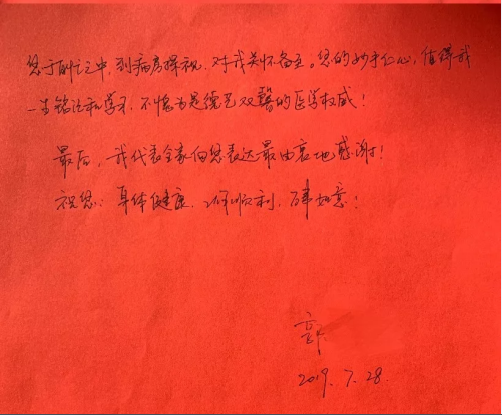 您于百忙之中,到病房探视,对我关怀备至。您的妙手仁心,值得我
一生铭记和学习,不愧为是德艺双馨的医学权威!
最后,我代表全家向您表达最由衷地感谢!
祝您:身体健康,工作顺利,万事如意!
郭
2019.7.28